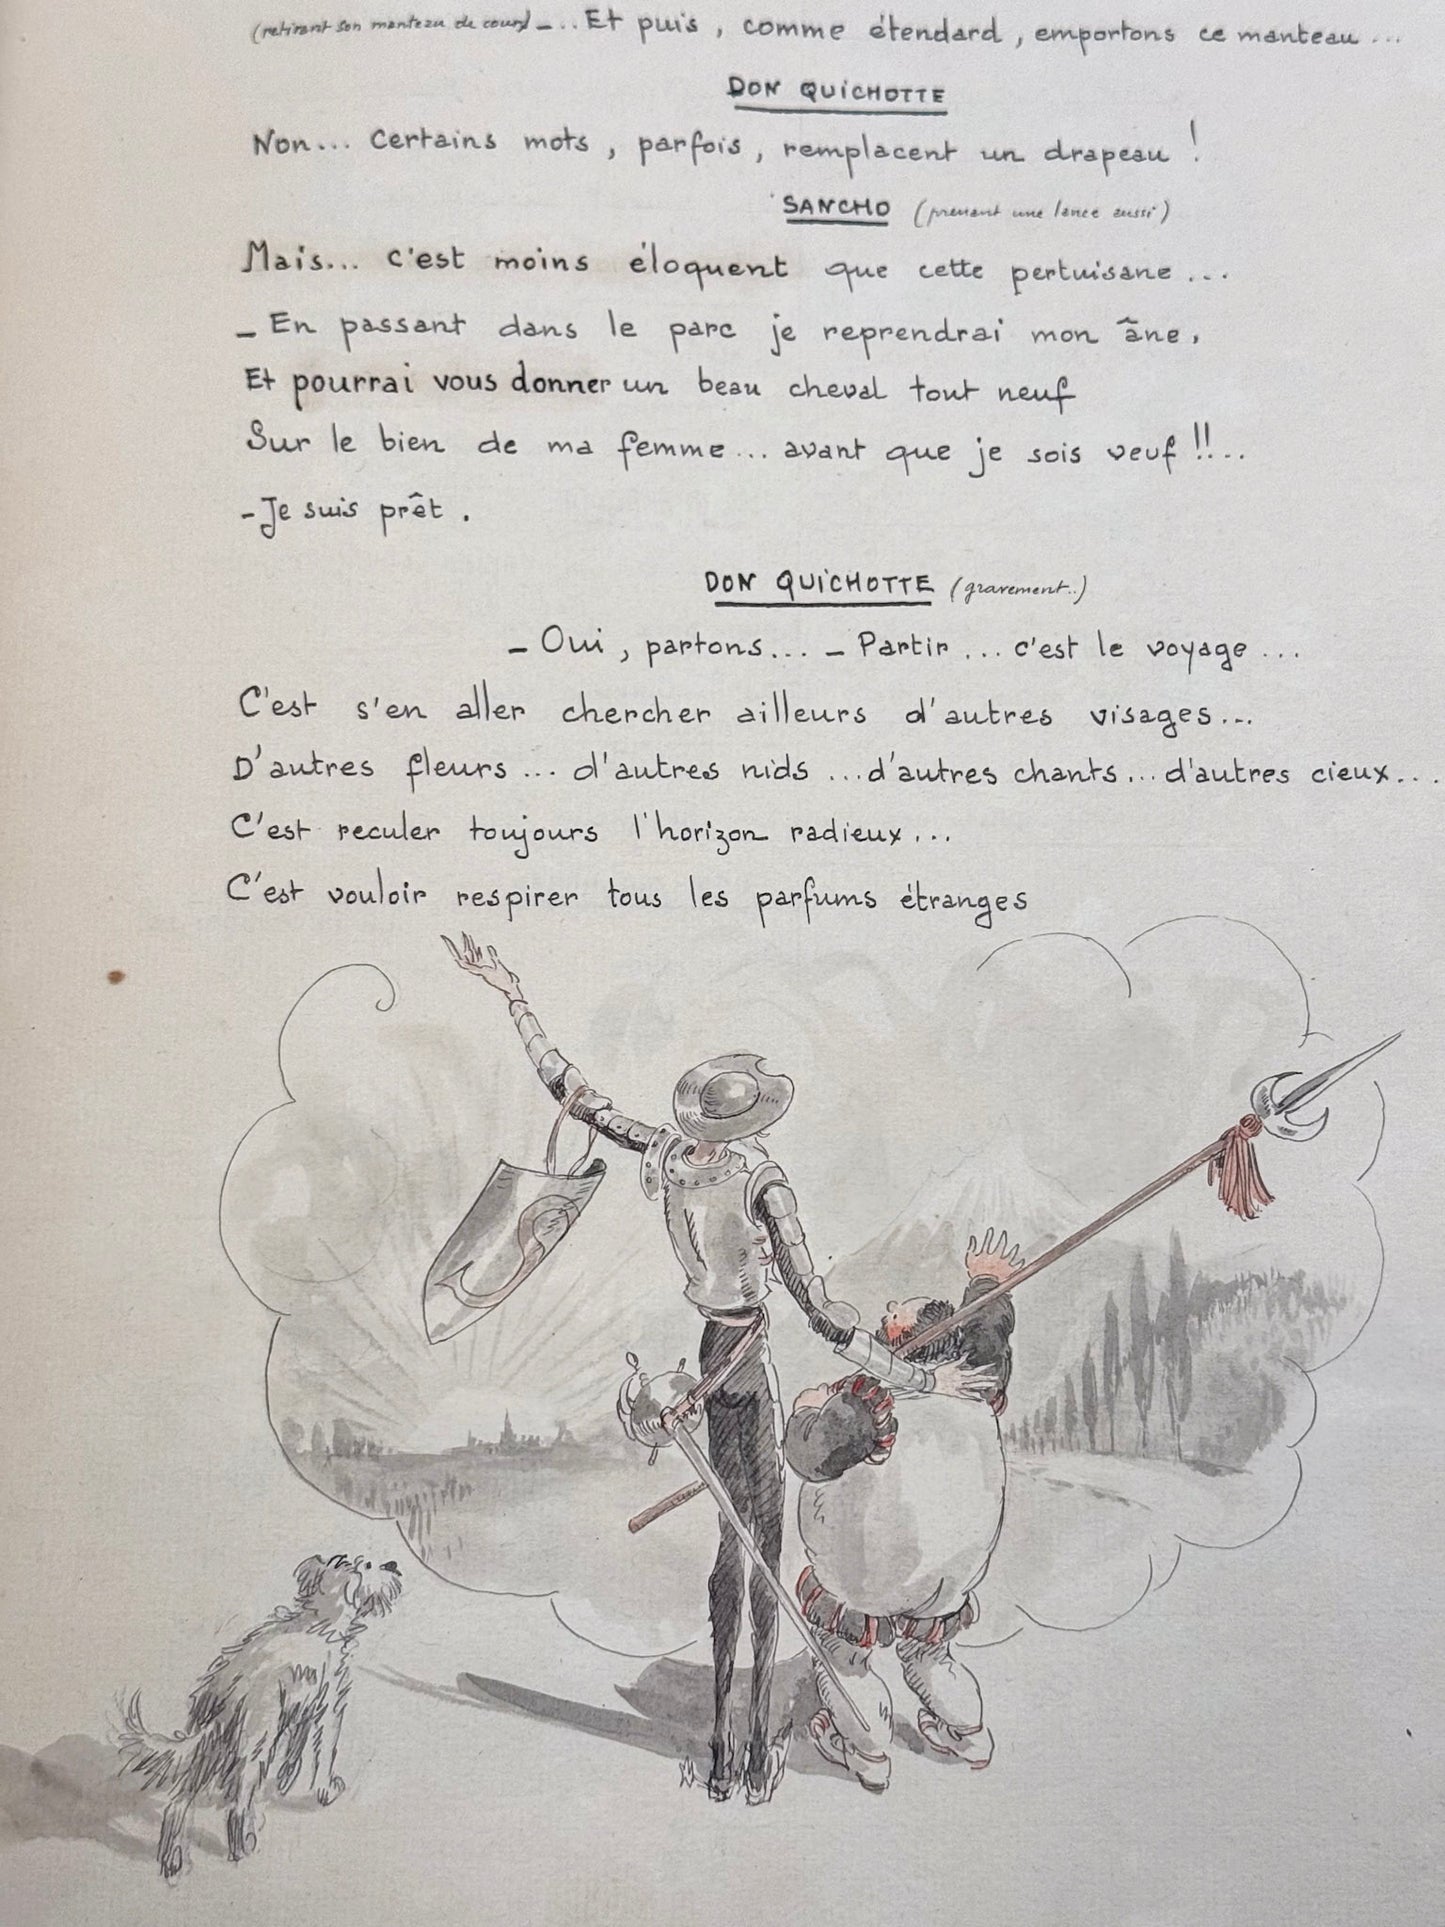 (retirant son manteau de cour) – ... Et puis, comme étendard, emportons ce manteau ...
DON QUICHOTTE
Non... Certains mots, parfois, remplacent un drapeau !
SANCHO (prenant une lance aussi)
Mais... c'est moins éloquent que cette pertuisane ...
– En passant dans le parc je reprendrai mon âne,
Et pourrai vous donner un beau cheval tout neuf
Sur le bien de ma femme ... avant que je sois veuf !!...
- Je suis prêt .
DON QUICHOTTE (gravement..)
– Oui, partons ... – Partir ... c'est le voyage ...
C'est s'en aller chercher ailleurs d'autres visages...
D'autres fleurs ... d'autres nids ... d'autres chants ... d'autres cieux ...
C'est reculer toujours l'horizon radieux ...
C'est vouloir respirer tous les parfums étranges